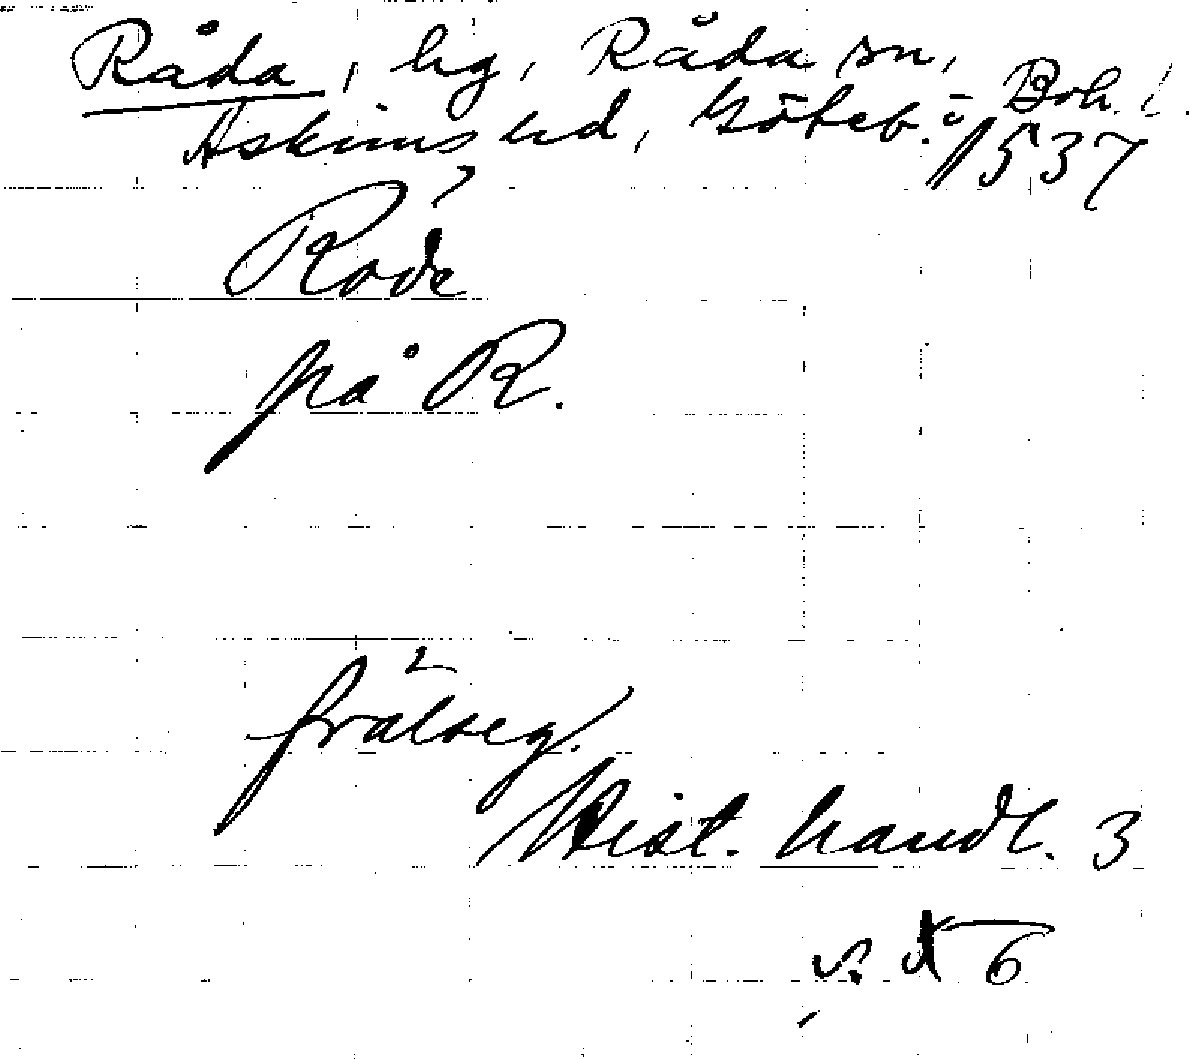 Råda, hg, Råda sn,
Askims hd, Göteb. o. Boh. l.
1537
Rode
på R.
frälseg.
Hist. handl. 3
s. 56